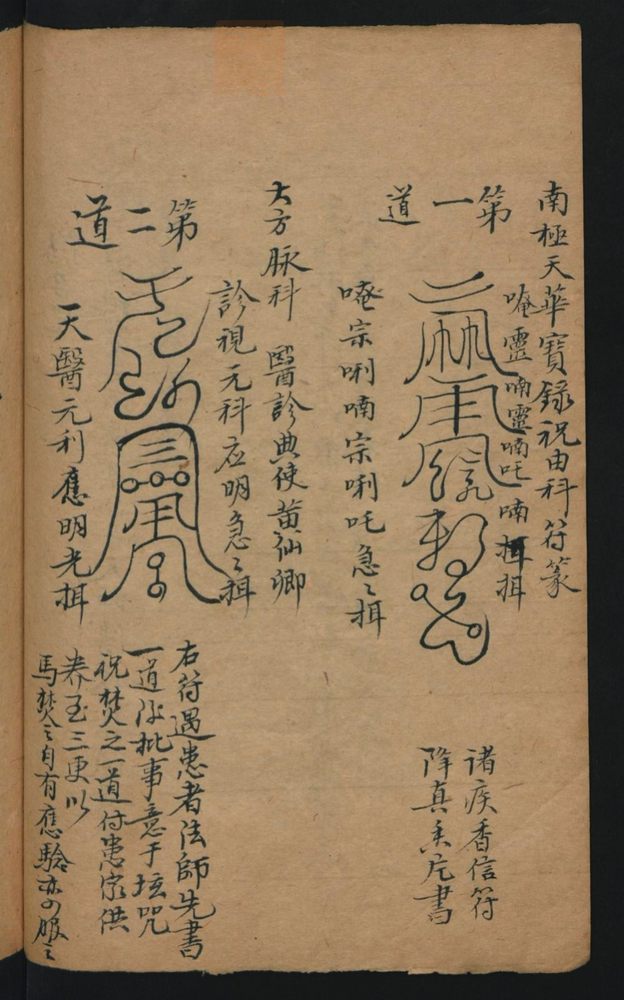 南極天華寶錄祝由科符篆
唵靈喃靈喃吒喃揖揖
第一道
諸疾香信符
降真香片書
唵宗唎喃宗唎吒急々揖
大方脉科 醫診典使黃仙卿
診視元科应明急々揖
第二道
天醫元利應明光揖
右符遇患者法師先書
一道後批事意于坛咒
祝焚之一道付患家供
养至三更以
馬焚之自有應驗亦可服之